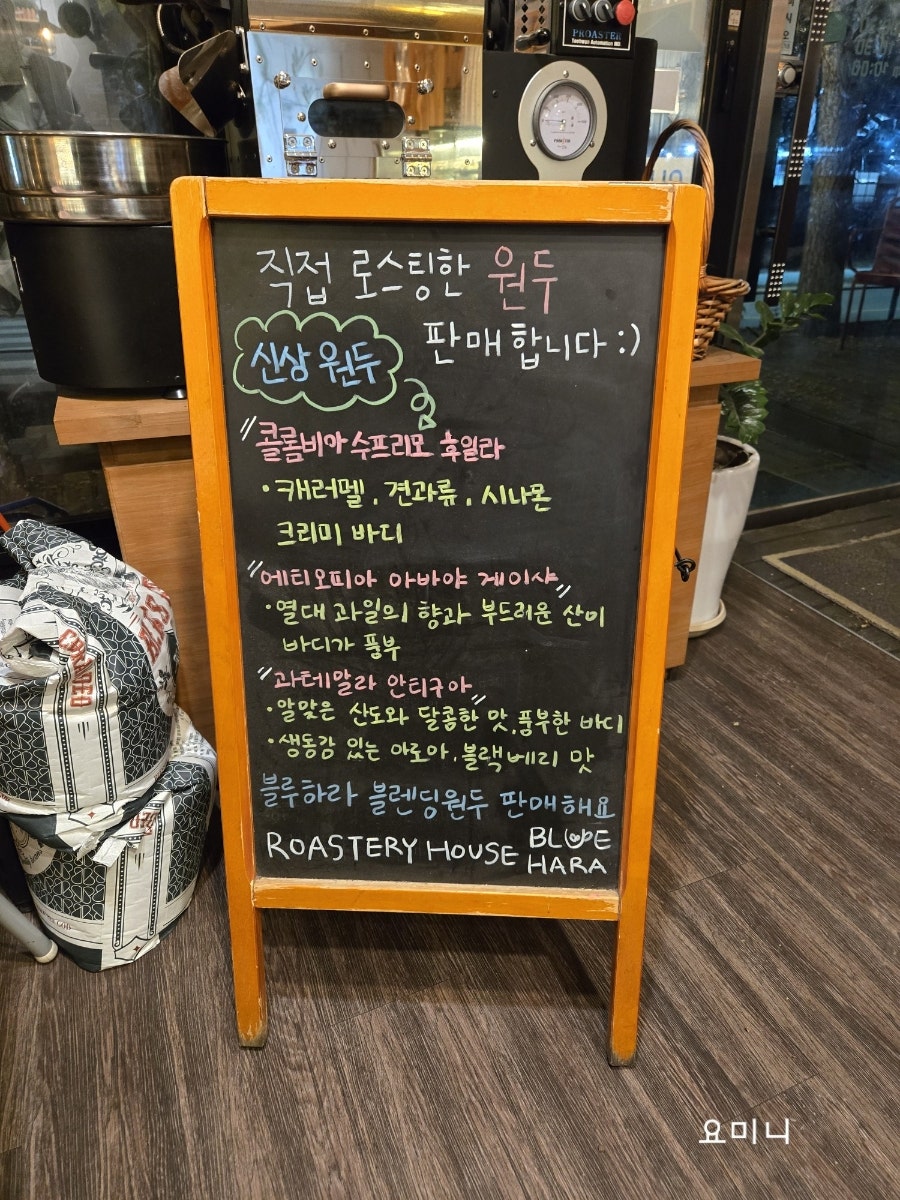 PROASTER
Taehwan Automation IND.
직접 로스팅한 원두
판매합니다 :)
신상 원두
"콜롬비아 수프리모 후일라
· 캐러멜, 견과류, 시나몬
크리미 바디
"에티오피아 아바야 게이샤"
· 열대 과일의 향과 부드러운 산미
바디가 풍부
"과테말라 안티구아"
· 알맞은 산도와 달콤한 맛, 풍부한 바디
· 생동감 있는 아로마, 블랙베리 맛
블루하라 블렌딩원두 판매해요
ROASTERY HOUSE BLUE
HARA
요미니